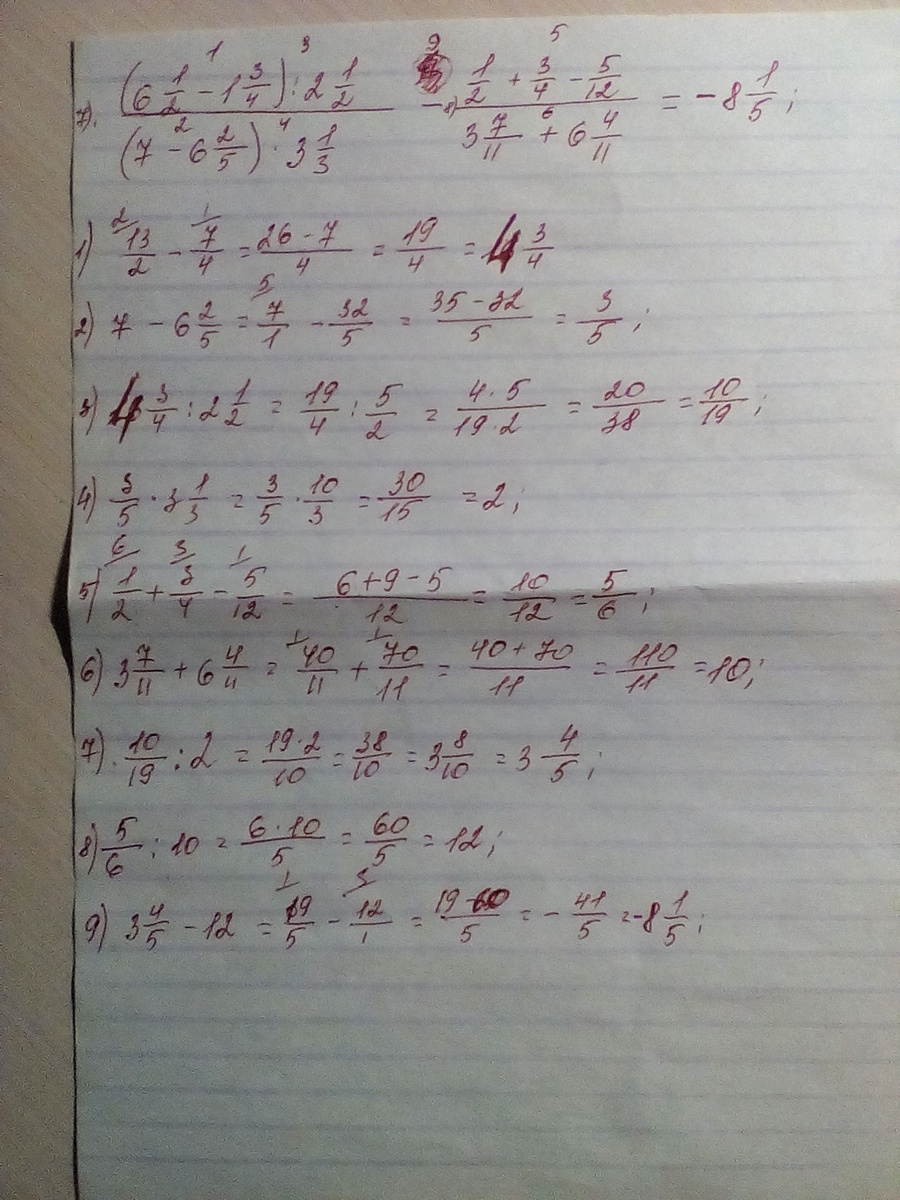 7). ((6 1/2 - 1 3/4) : 2 1/2) / ((7 - 6 2/5) · 3 1/3) - (1/2 + 3/4 - 5/12) / (3 7/11 + 6 4/11) = - 8 1/5;
1) 13/2 - 7/4 = (26 - 7)/4 = 19/4 = 4 3/4
2) 7 - 6 2/5 = 7/1 - 32/5 = (35 - 32)/5 = 3/5;
3) 4 3/4 : 2 1/2 = 19/4 : 5/2 = (4·5)/(19·2) = 20/38 = 10/19;
4) 3/5 · 3 1/3 = 3/5 · 10/3 = 30/15 = 2;
5) 1/2 + 3/4 - 5/12 = (6 + 9 - 5)/12 = 10/12 = 5/6;
6) 3 7/11 + 6 4/11 = 40/11 + 70/11 = (40 + 70)/11 = 110/11 = 10;
7) 10/19 : 2 = (19·2)/10 = 38/10 = 3 8/10 = 3 4/5;
8) 5/6 : 10 = (6·10)/5 = 60/5 = 12;
9) 3 4/5 - 12 = 19/5 - 12/1 = (19 - 60)/5 = - 41/5 = - 8 1/5;